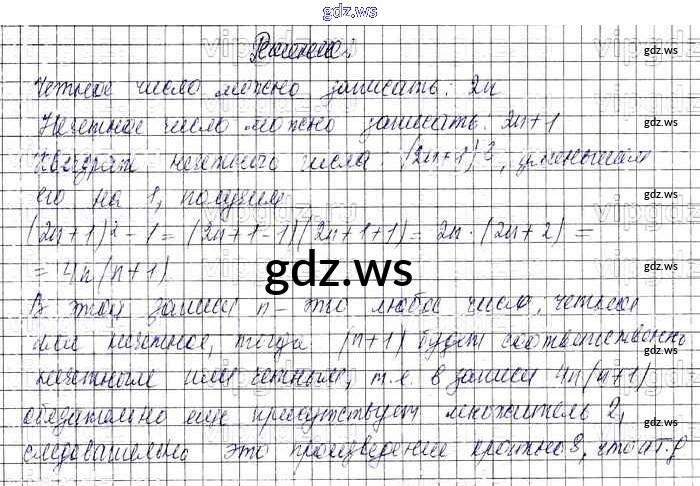 gdz.ws
Решение:
Четное число можно записать: 2n
Нечетное число можно записать: 2n+1
Квадрат нечетного числа (2n+1)², уменьшим
его на 1, получим
(2n+1)² - 1 = (2n+1-1)(2n+1+1) = 2n·(2n+2) =
= 4n(n+1)
gdz.ws
В этой записи n - это любое число, четное
или нечетное, тогда (n+1) будет соответственно
нечетным или четным, т.е. в записи 4n(n+1)
обязательно еще присутствует множитель 2,
следовательно это произведение кратно 8, что и т.д